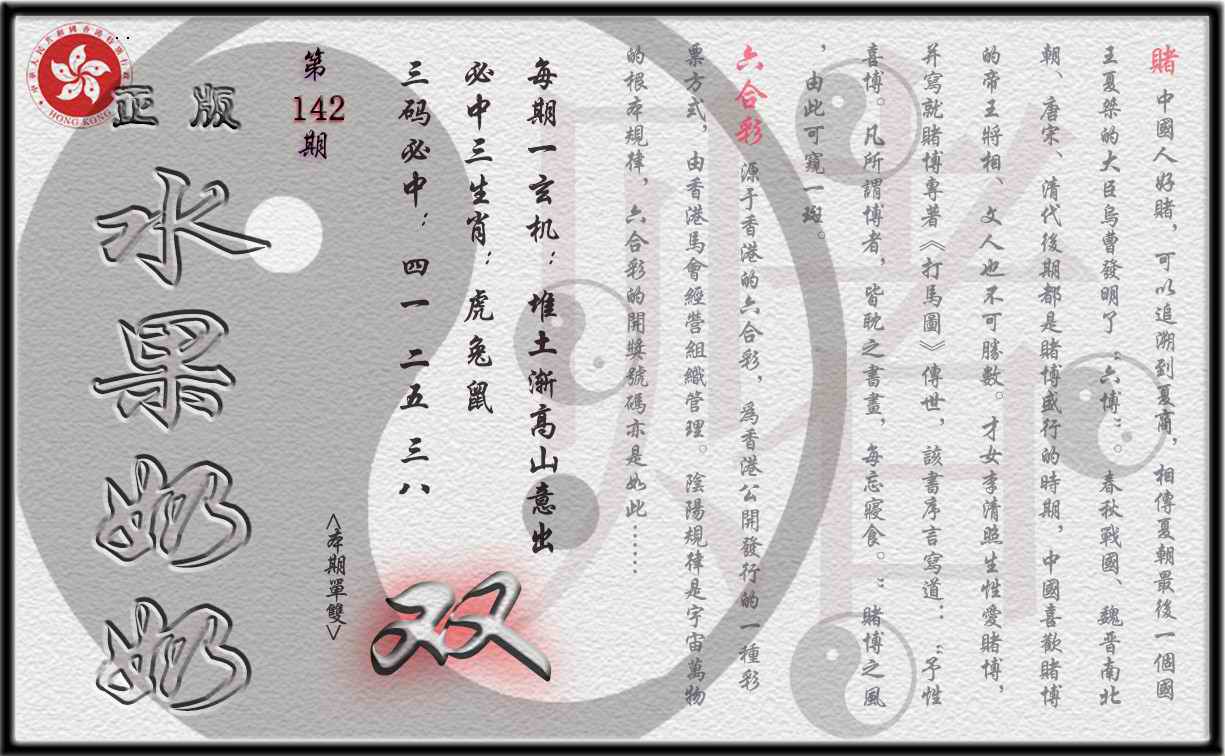 賭 中國人好賭，可以追溯到夏商，相傳夏朝最後一個國
王夏桀的大臣烏曹發明了“六博”。春秋戰國、魏晋南北
朝、唐宋、清代後期都是賭博盛行的時期，中國喜歡賭博
的帝王將相、文人也不可勝數。才女李清照生性愛賭博，
并寫就賭博專著《打馬圖》傳世，該書序言寫道：“予性
喜博。凡所謂博者，皆耽之書畫，每忘寢食。”賭博之風
，由此可窺一斑。
六合彩 源于香港的六合彩，爲香港公開發行的一種彩
票方式，由香港馬會經營組織管理。陰陽規律是宇宙萬物
的根本規律，六合彩的開獎號碼亦是如此……
每期一玄机：堆土渐高山意出
必中三生肖：虎兔鼠
三码必中：四一 二五 三八
<本期單雙>
双
第
142
期
正版
水果奶奶
中華人民共和國香港特別行政區
HONG KONG